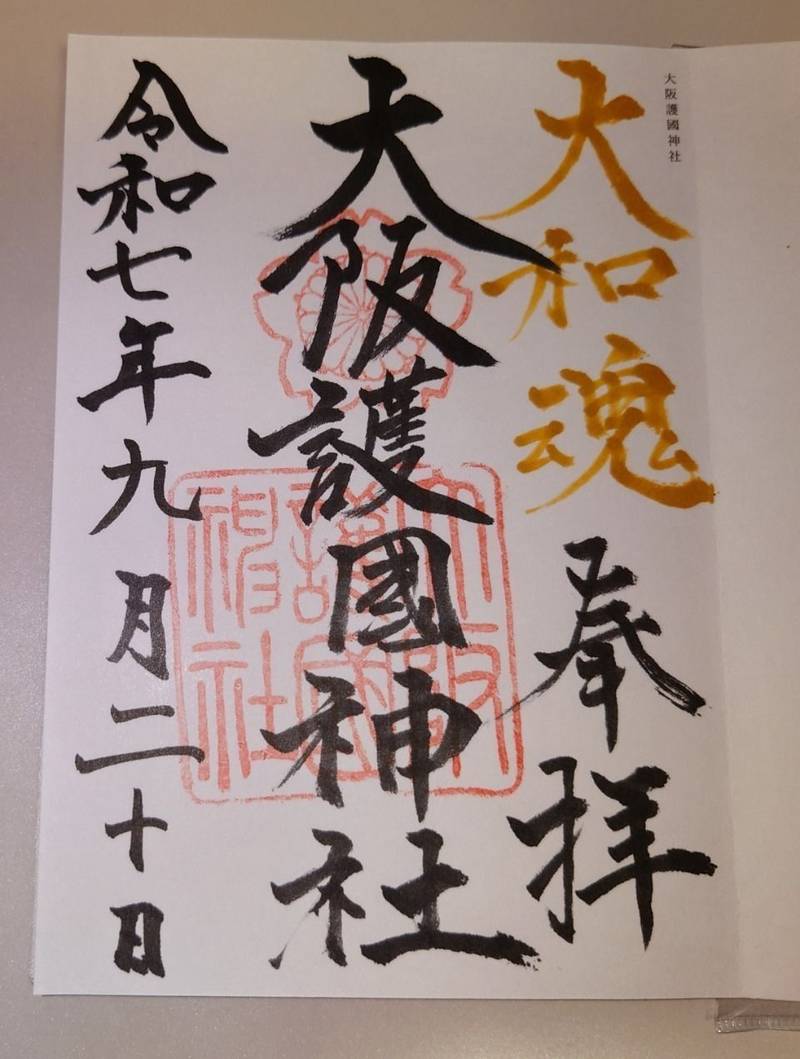 大阪護國神社
大和魂
奉拝
大阪護國神社
令和七年九月二十日
大阪
護國
神社